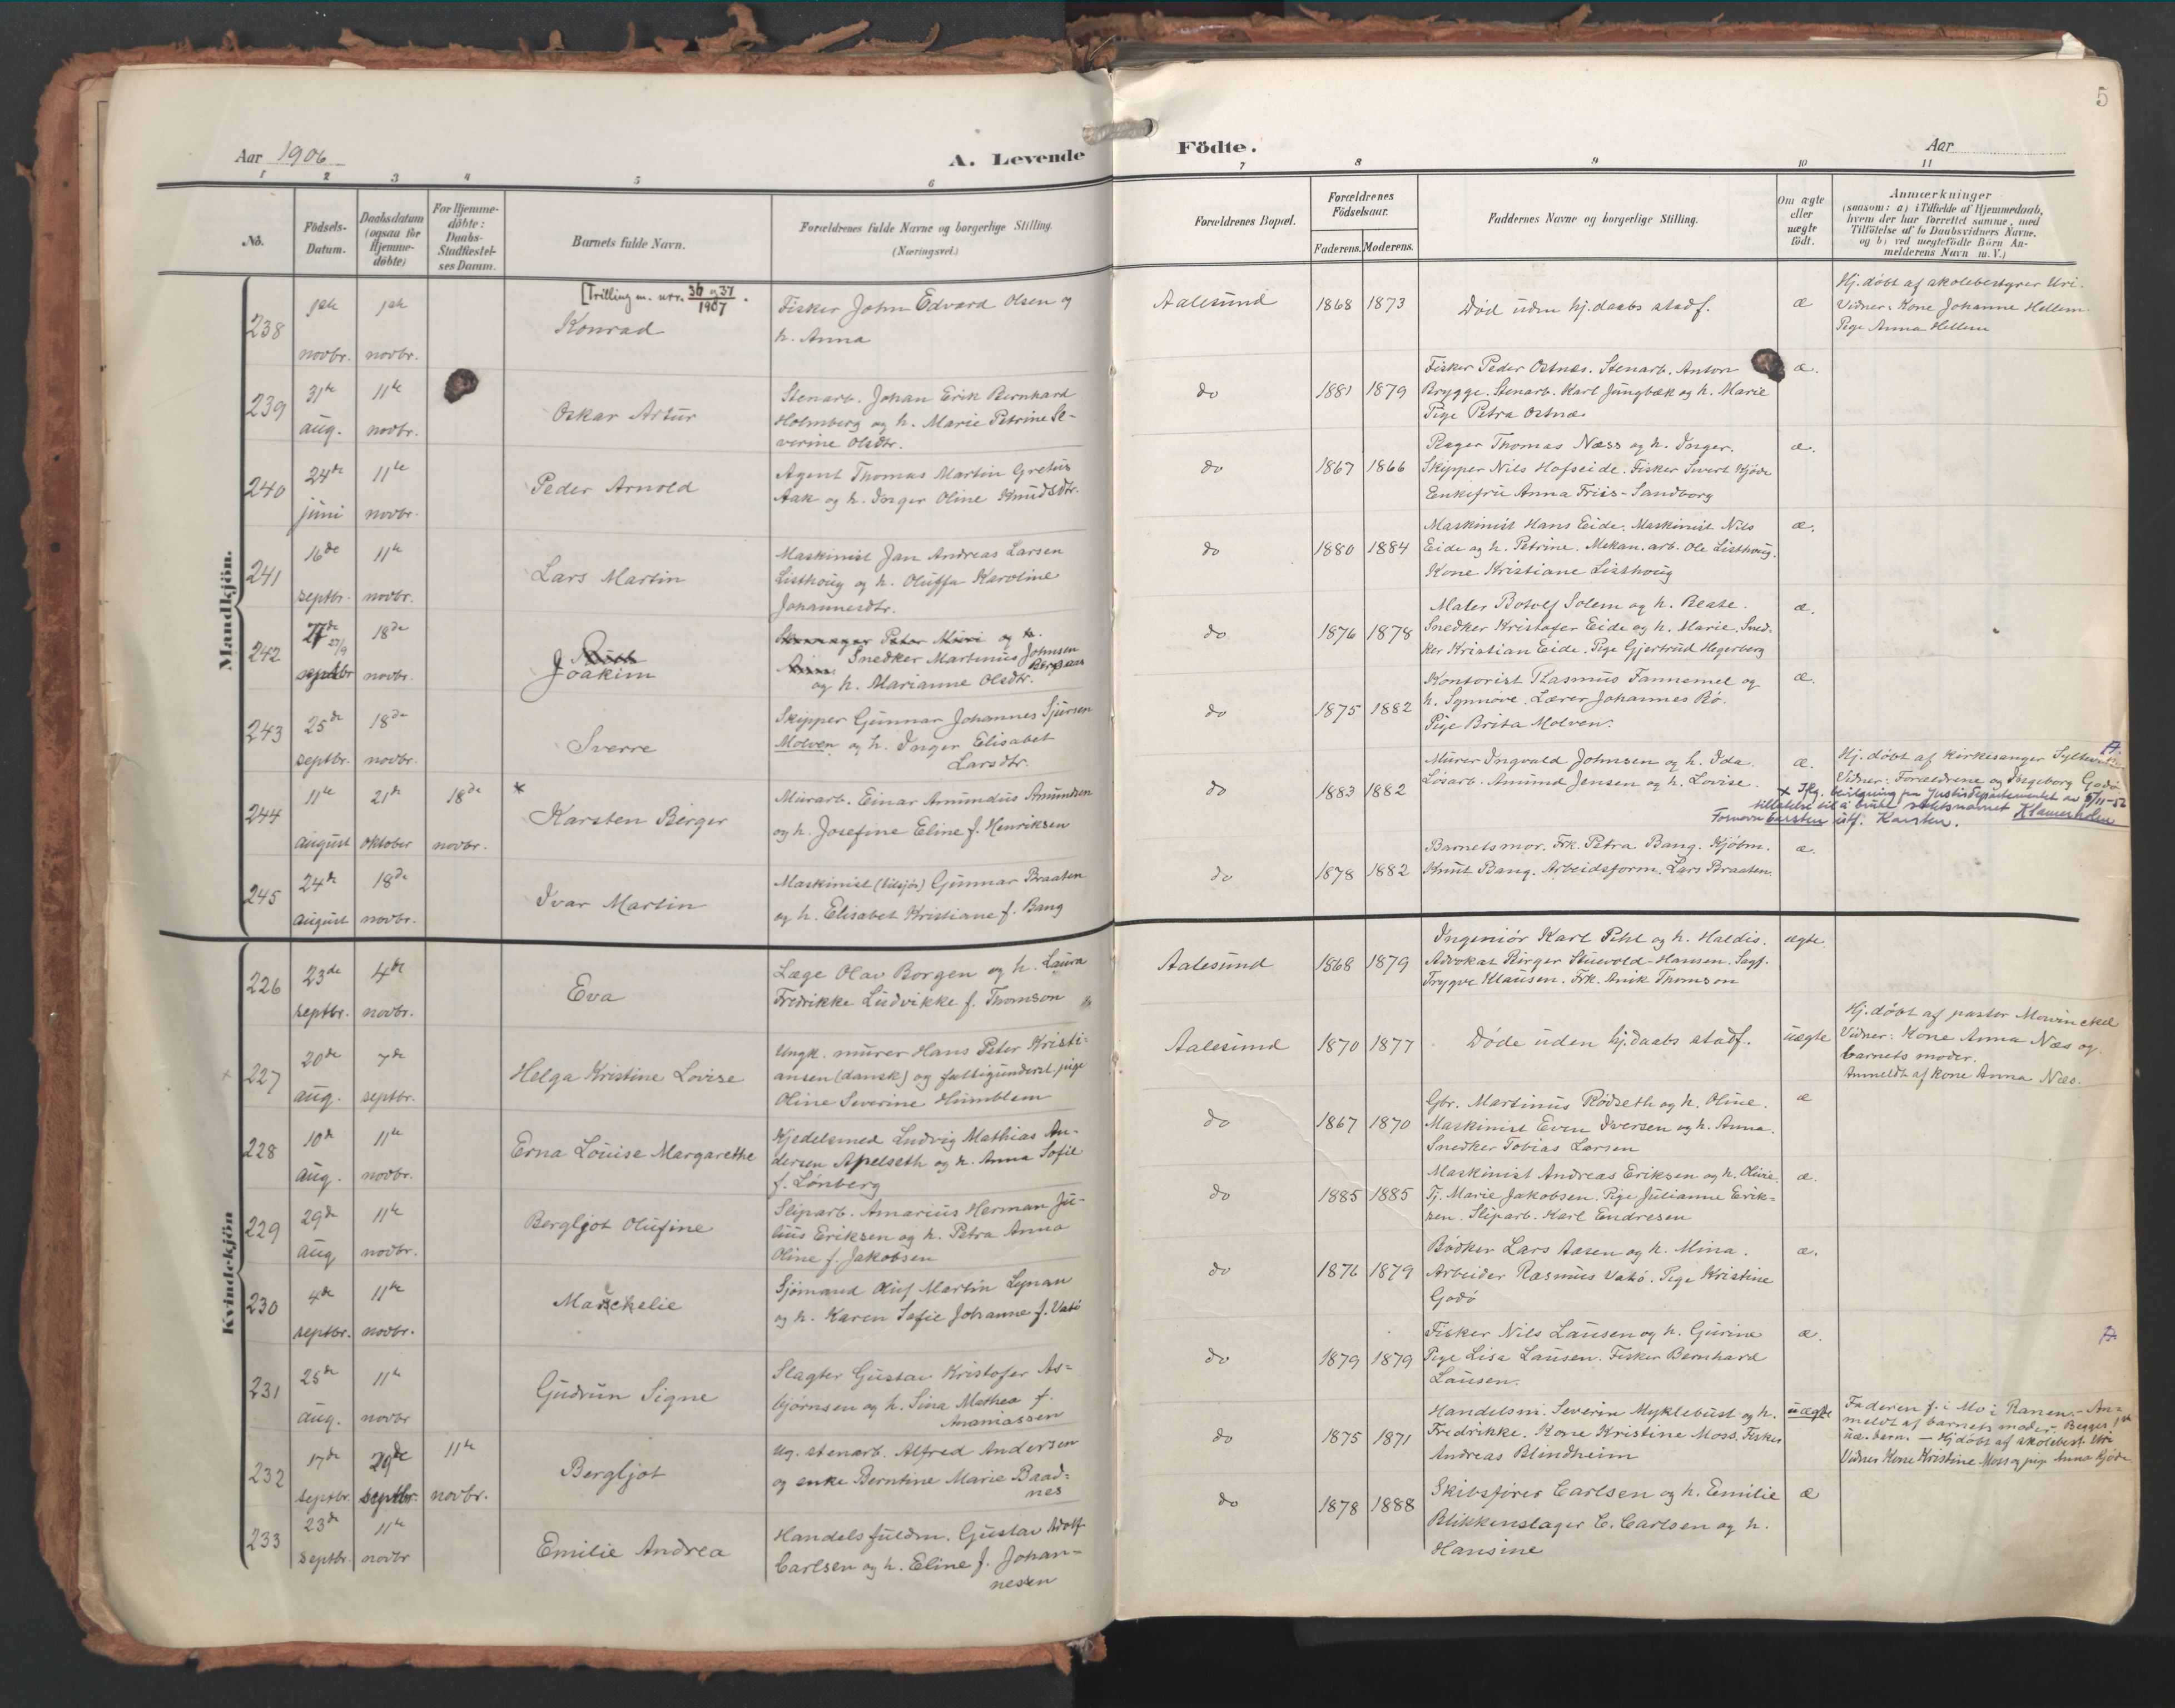 5
Aar 1906
A. Levende
Födte.
Aar
1 2 3 4 5 6 7 8 9 10 11
No.
Födsels-
Datum.
Daabsdatum
(ogsaa for
Hjemme-
döbte)
For Hjemme-
döbte:
Daabs-
Stadfæstel-
ses Datum.
Barnets fulde Navn.
Forældrenes fulde Navne og borgerlige Stilling.
(Næringsvei.)
Forældrenes Bopæl.
Forældrenes
Födselsaar.
Faderens. Moderens.
Faddernes Navne og borgerlige Stilling.
Om ægte
eller
uægte
födt.
Anmærkninger
(saasom: a) i Tilfælde af Hjemmedaab,
hvem der har forrettet samme, med
Tilföielse af to Daabsvidners Navne.
og b) ved uægtefödte Börn An-
melderens Navn m. V.)
Mandkjön.
238
novbr.
novbr.
[Trilling m. nrr. 36 og 37
1907
Konrad
Fisker John Edvard Olsen og
h. Anna
Aalesund
1868 1873
Död uden hj.daabs stadf.
æ
Hj. døbt af skolebestyrer Uri.
Vidner: Kone Johanne Hellem.
Pige Anna Hellem
239
31te
aug.
11te
novbr.
Oskar Artur
Stenarb. Johan Erik Bernhard
Holmberg og h. Marie Petrine Se-
verine Olsdtr.
do
1881 1879
Fisker Peder Ostnes. Stenarb. Anton
Brygge. Stenarb. Karl Jungbæk og h. Marie
Pige Petra Ostnes
æ.
240
24de
juni
11te
novbr.
Peder Arnold
Agent Thomas Martin Gretus
Aak og h. Inger Oline Knudsdtr.
do
1867 1866
Thomas Næss og h. Inger.
Skipper Nils Hofseide. Fisker Sivert Gjøde
Enkefru Anna Friis-Sandborg
æ.
241
16de
septbr.
11te
novbr.
Lars Martin
Maskinist Jan Andreas Larsen
Listhoug og h. Oluffa Karoline
Johannesdtr.
do
1880 1884
Maskinist Hans Eide. Maskinist Nils
Eide og h. Petrine. Mekan. arb. Ole Listhoug.
Kone Kristiane Listhoug
æ.
242
27de 27/9
septbr
18de
novbr.
Ruth
Joakim
Peter og h.
Snedker Martinus Johnsen
og h. Marianne Olsdtr.
do
1876 1878
Maler Botolf Solem og h. Beate.
Snedker Kristofer Eide og h. Marie. Sned-
ker Kristian Eide. Pige Gjertrud Hegerberg
æ.
243
25de
septbr.
18de
novbr.
Sverre
Skipper Gunnar Johannes Sjursen
Molven og h. Inger Elisabet
Larsdtr.
do
1875 1882
Kontorist Rasmus Fannemel og
h. Synnøve. Lærer Johannes Bø.
Pige Brita Molven.
æ.
244
11te
august
21de
oktober
18de
novbr.
*
Karsten Birger
Murarb. Einar Amundus Amundsen
og h. Josefine Eline f. Henriksen
do
1883 1882
Murer Ingvald Johnsen og h. Ida
Løsarb. Amund Jensen og h. Lovise.
æ.
A.
Hj. døbt af kirkesanger
Vidner: Forældrene og Ingeborg Godø
x Iflg. bevilgning fra Justisdepartementet av 5/11-52
tillatelse til å bruke slektsnavnet
Fornavn Carsten istf. Karsten.
245
24de
august
18de
novbr.
Ivar Martin
Maskinist (tilsjös) Gunnar Braaten
og h. Elisabet Kristiane f. Bang
do
1878 1882
Barnets mor. Frk. Petra Bang. Kjöbm.
Knut Bang. Arbeidsform. Lars Braaten.
æ.
Kvindekjön
226
23de
septbr.
4de
novbr.
Eva
Læge Olav Borgen og h. Laura
Fredrikke Ludvikke f. Thomson
Aalesund
1868 1879
Ingeniör Karl Pihl og h. Haldis.
Advokat Birger Stuevold-Hansen. Sagf.
Trygve Klausen. Frk. Anik Thomson
ægte.
227
20de
aug.
7de
septbr.
Helga Kristine Lovise
Ungk. murer Hans Peter Kristi-
ansen (dansk) og fattigunderst. pige
Oline Severine Humblem
Aalesund
1870 1877
Döde uden hj.daabs stadf.
uægte
Hj. døbt af pastor Mowinckel
Vidner: Kone Anna Næs og
barnets moder.
Anmeldt af kone Anna Næs.
228
10de
aug.
11te
novbr.
Erna Louise Margarethe
Kjedelsmed Ludvig Mathias An-
dersen Apelseth og h. Anna Sofie
f. Lönberg
do
1867 1870
Gbr. Martinus Rødseth og h. Oline.
Maskinist Even Iversen og h. Anna.
Snedker Tobias Larsen
æ
229
29de
aug.
11te
novbr.
Bergljot Olufine
Sliparb. Amarius Herman Ju-
lius Eriksen og h. Petra Anna
Oline f. Jakobsen
do
1885 1885
Maskinist Andreas Eriksen og h. Oline.
Tj. Marie Jakobsen. Pige Julianne Erik-
sen. Sliparb. Karl Endresen
æ.
230
4de
septbr.
11te
novbr.
Sjömand Oluf Martin Synan
og h. Karen Sofie Johanne f. Vatö
do
1876 1879
Bödker Lars Aasen og h. Mina.
Arbeider Rasmus Vatö. Pige Kristine
Godö
æ.
231
25de
aug.
11te
novbr
Gudrun Signe
Slagter Gustav Kristofer As-
bjørnsen og h. Sina Mathea f.
Ananiassen
do
1879 1879
Fisker Nils Lausen og h. Gurine
Pige Lisa Lausen. Fisker Bernhard
Lausen.
æ.
A
232
17de
septbr.
29de
septbr.
11te
novbr.
Bergljot
Ug. stenarb. Alfred Andersen
og enke Berntine Marie Baad-
nes
do
1875 1871
Handelsm. Severin Myklebust og h.
Fredrikke. Kone Kristine Moss. Fisker
Andreas Blindheim
uægte
Faderen f. i Mo i Ranen. - An-
meldt af barnets moder. Begges 1ste
uæ. barn. - Hj.døbt af skolebest. Uri
Vidner Kone Kristine Moss og pige Anna Gjöde
233
23de
septbr.
11te
novbr
Emilie Andrea
Handelsfuldm. Gustav Adolf
Carlsen og h. Eline f. Johan-
nesen
do
1878 1888
Skibsfører Carlsen og h. Emilie
Blikkenslager C. Carlsen og h.
Hansine
æ